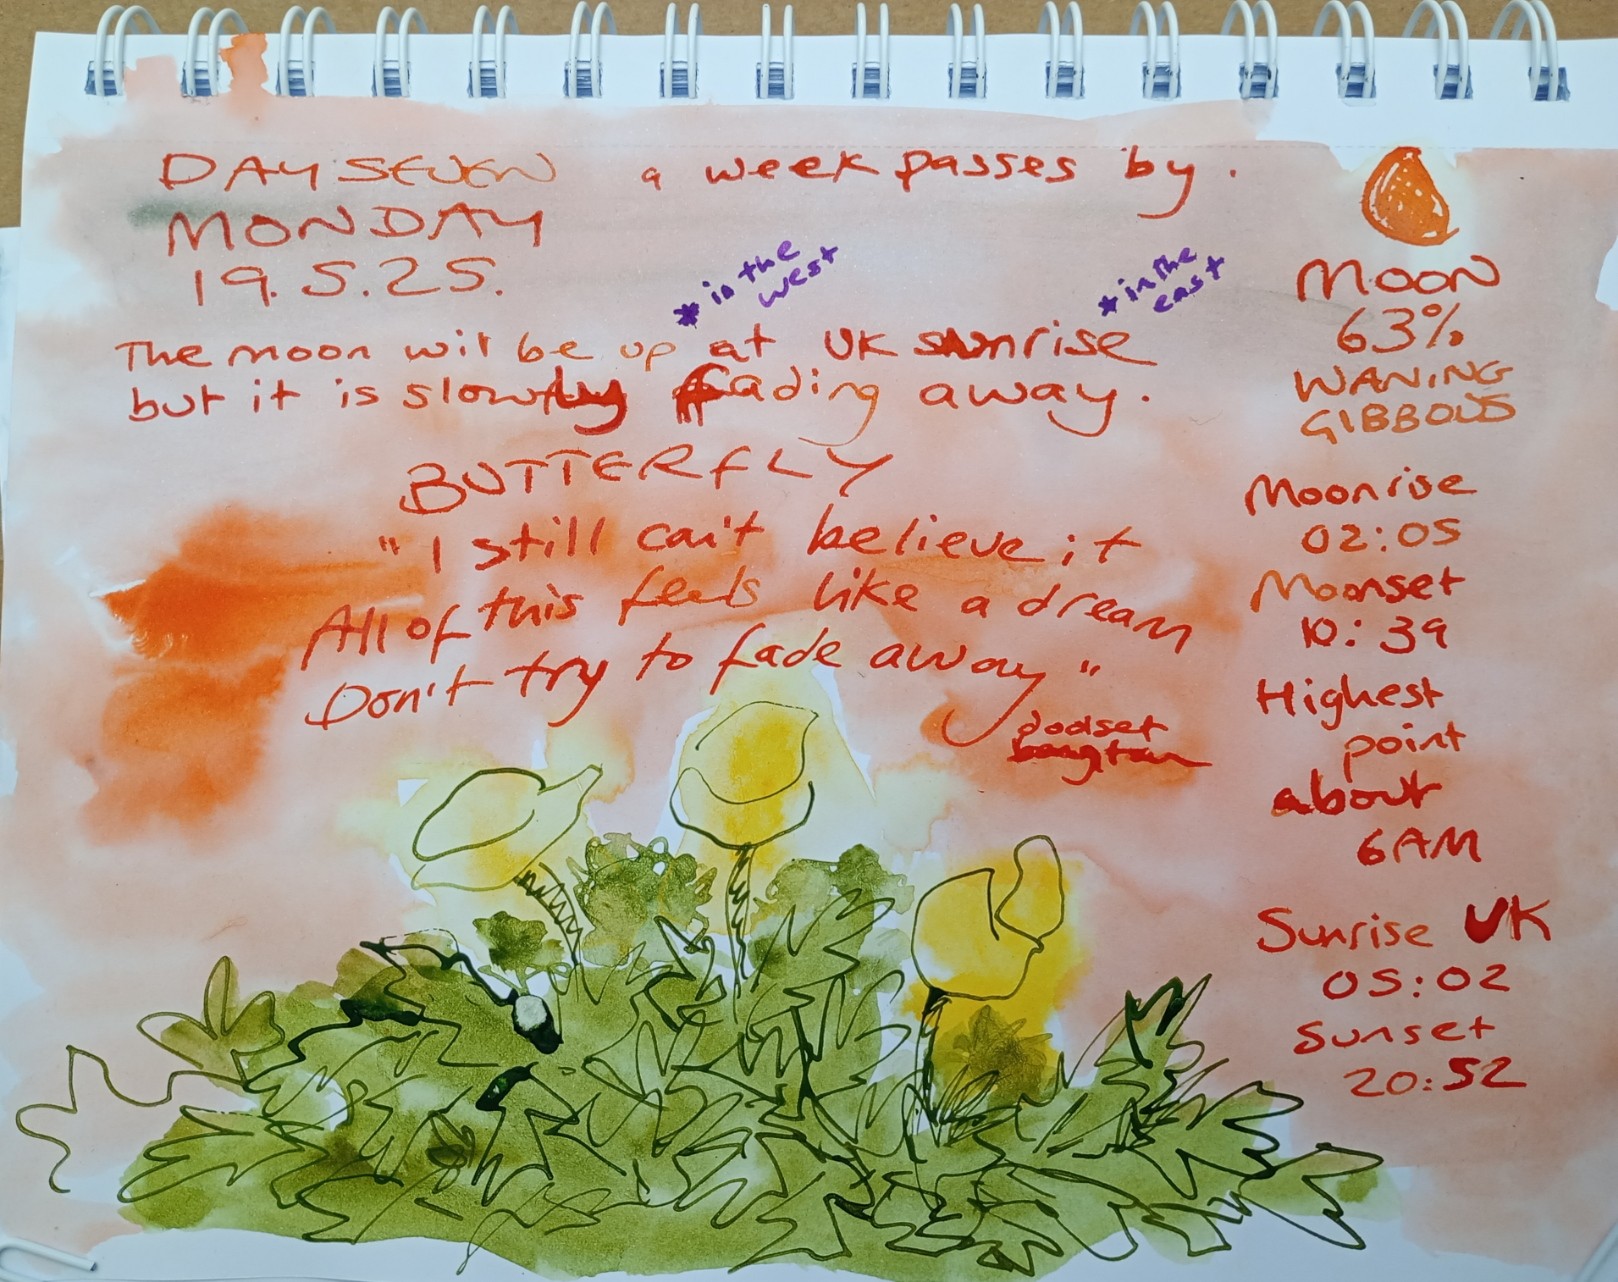 DAY SEVEN a week passes by.
MONDAY
19.5.25.
* in the
west
* in the
east
The moon wil be up at UK sunrise
but it is slowly fading away.
BUTTERFLY
"I still can't believe it
All of this feels like a dream
Don't try to fade away"
bangtan
MOON
63%
WANING
GIBBOUS
Moonrise
02:05
Moonset
10:39
Highest
point
about
6AM
Sunrise UK
05:02
Sunset
20:52